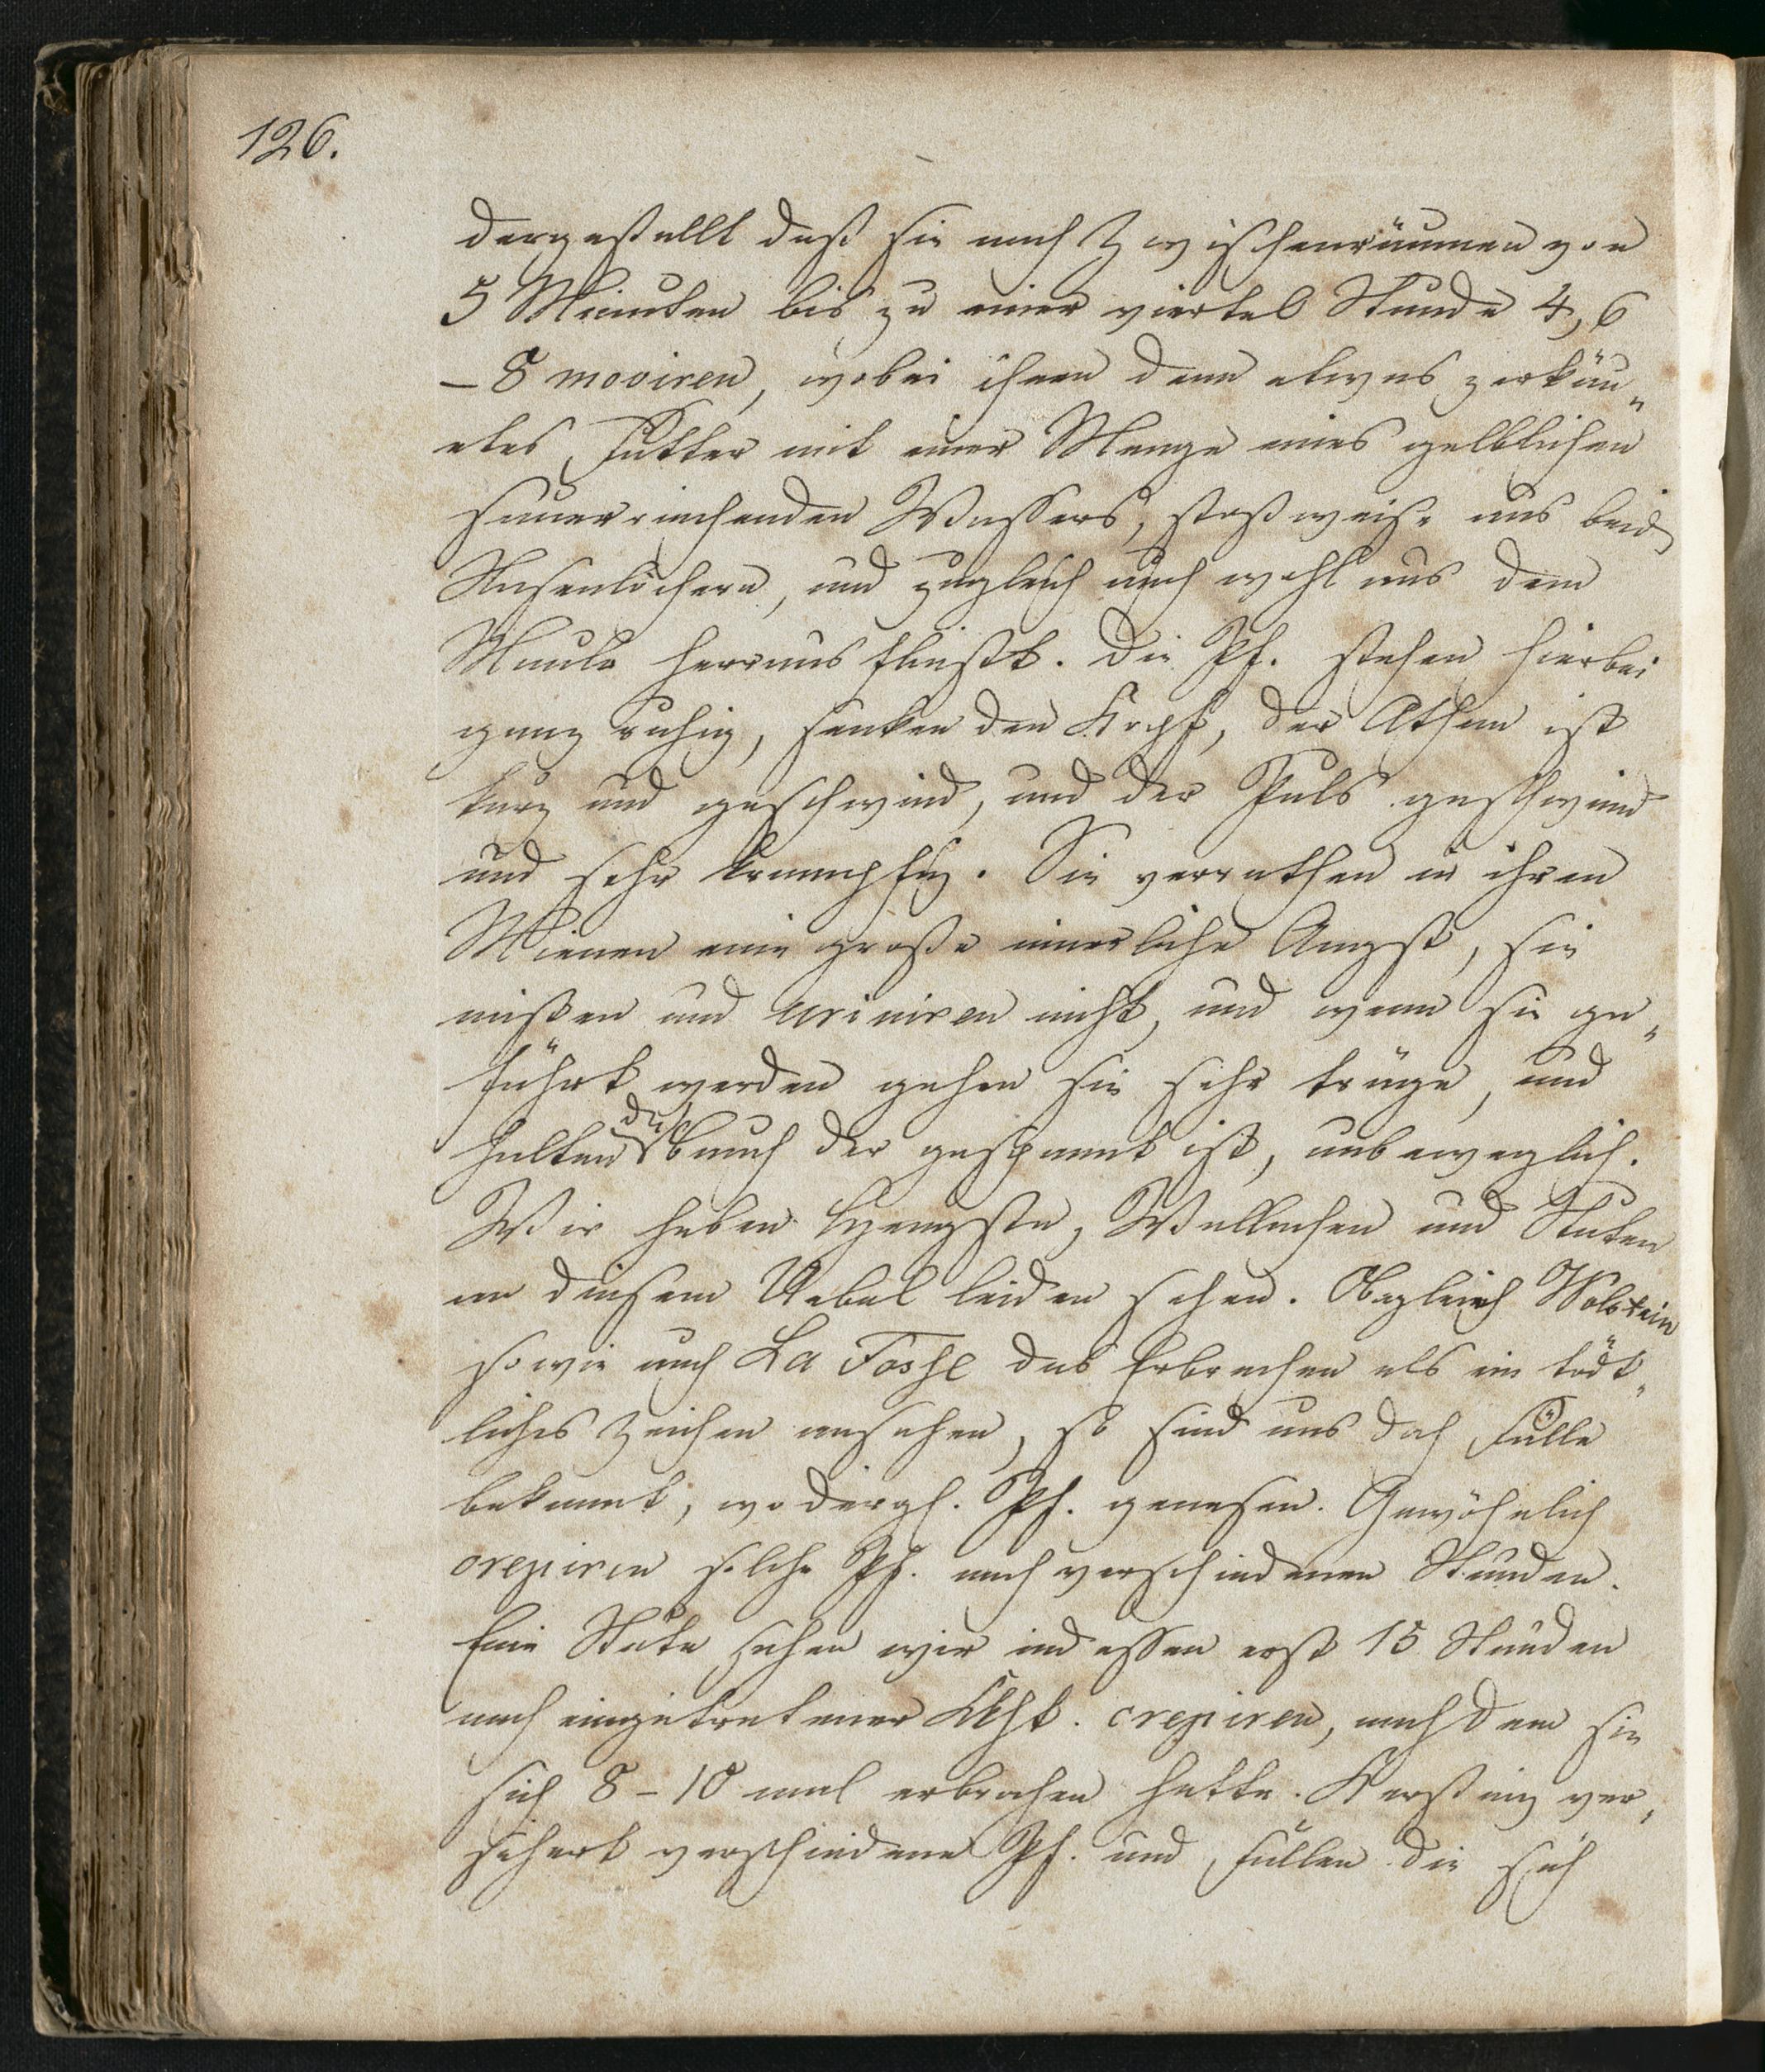 126.
dergestallt daß sie nach Zwischenräumen von
5 Minuten bis zu einer viertel Stunde 4, 6
– 8 moviren, wobei ihnen dann etwas zerkäu„
etes Futter mit einer Menge eines gelblichen
sauerriechenden Wassers, stoßweise aus beid
Nasenlöchern, und zugleich auch wohl aus dem
Maule herraus fließt. Die Pf. stehen hierbei
ganz ruhig, senken den Kopf, der Athem ist
kurz und geschwind, und der Puls geschwind
und sehr krampfig. Sie verrathen in ihren
Mienen eine große innerliche Angst, sie
misten und uriniren nicht, und wenn sie ge„
führt werden gehen sie sehr träge, und
halten den Bauch der gespannt ist, unbeweglich.
Wir haben Hengste, Wallachen und Stuten
an diesem Uebel leiden sehen. Obgleich Wolstein
sowie auch La Fosse das Erbrechen als ein tödt„
liches Zeichen ansehen, so sind uns doch Fälle
bekannt, wo dergl. Pf. genesen. Gewöhnlich
crepiren solche Pf. nach verschiedenen Stunden.
Eine Stute sahen wir indessen erst 15 Stunden
nach eingetretener Kkht. crepiren, nachdem sie
sich 8 – 10 mal erbrochen hatte. Kersting ver„
sichert verschiedene Pf. und Füllen die sich